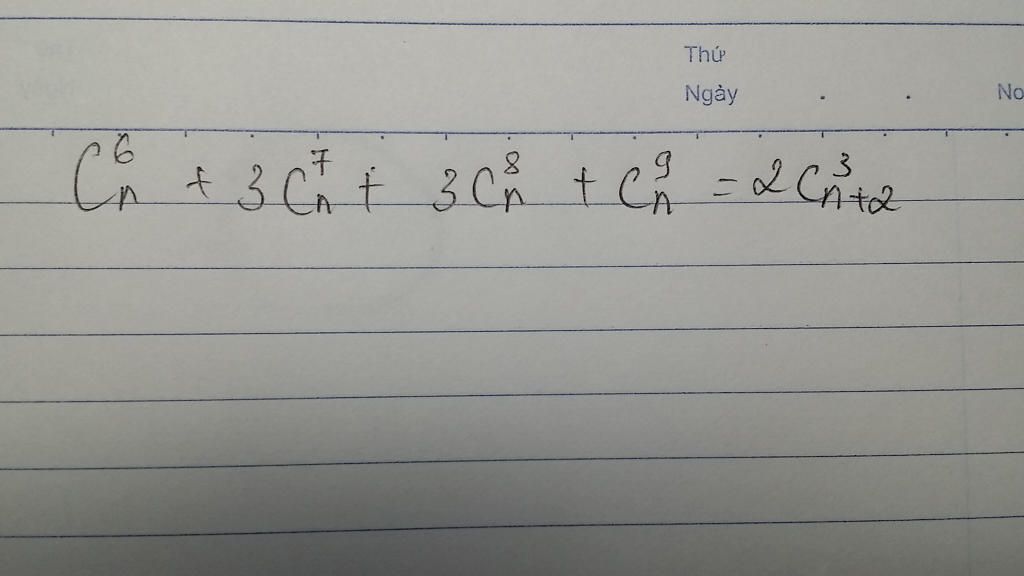 Thứ
Ngày . . No
C_n^6 + 3C_n^7 + 3C_n^8 + C_n^9 = 2C_{n+2}^3